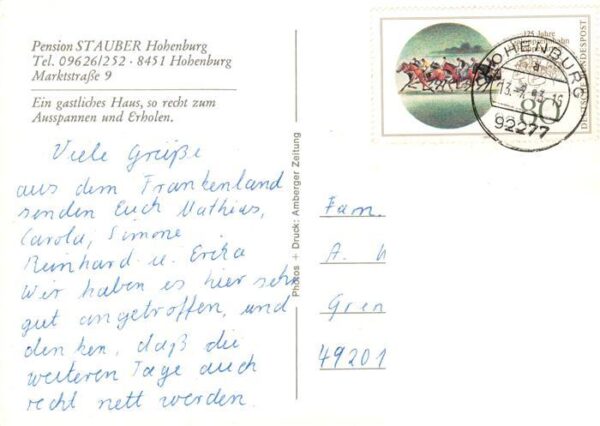 Pension STAUBER Hohenburg
Tel. 09626/252 · 8451 Hohenburg
Marktstraße 9
Ein gastliches Haus, so recht zum
Ausspannen und Erholen.
Viele Grüße
aus dem Frankenland
senden Euch Mathias,
Carola, Simone
Reinhard u. Erika
Wir haben es hier sehr
gut angetroffen, und
denken, daß die
weiteren Tage auch
recht nett werden.
Photos + Druck: Amberger Zeitung
125 Jahre
DEUTSCHE BUNDESPOST
80
HOHENBURG
a
92277
Fam.
A. H
Gren
49201